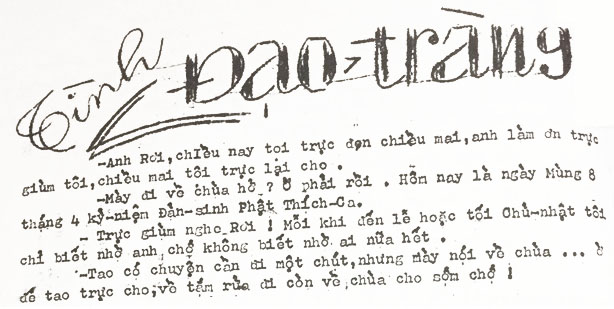 Tình Đạo-tràng
-Anh Rơi,chiều nay tới trực đọn chiều mai,anh làm ơn trực
giùm tôi,chiều mai tôi trực lại cho .
-Mày đi về chùa hở ? Ờ phải rồi . Hôm nay là ngày Mùng 8
tháng 4 kỷ-niệm Đản-sinh Phật Thích-Ca.
- Trực giùm nghe Rơi ! Mỗi khi đến lễ hoặc tối Chủ-nhật tôi
chỉ biết nhờ anh,chớ không biết nhờ ai nữa hết .
-Tao có chuyện cần đi một chút,nhưng mày nói về chùa ... ờ
để tao trực cho,về tắm rửa đi còn về,chùa cho sớm chớ !